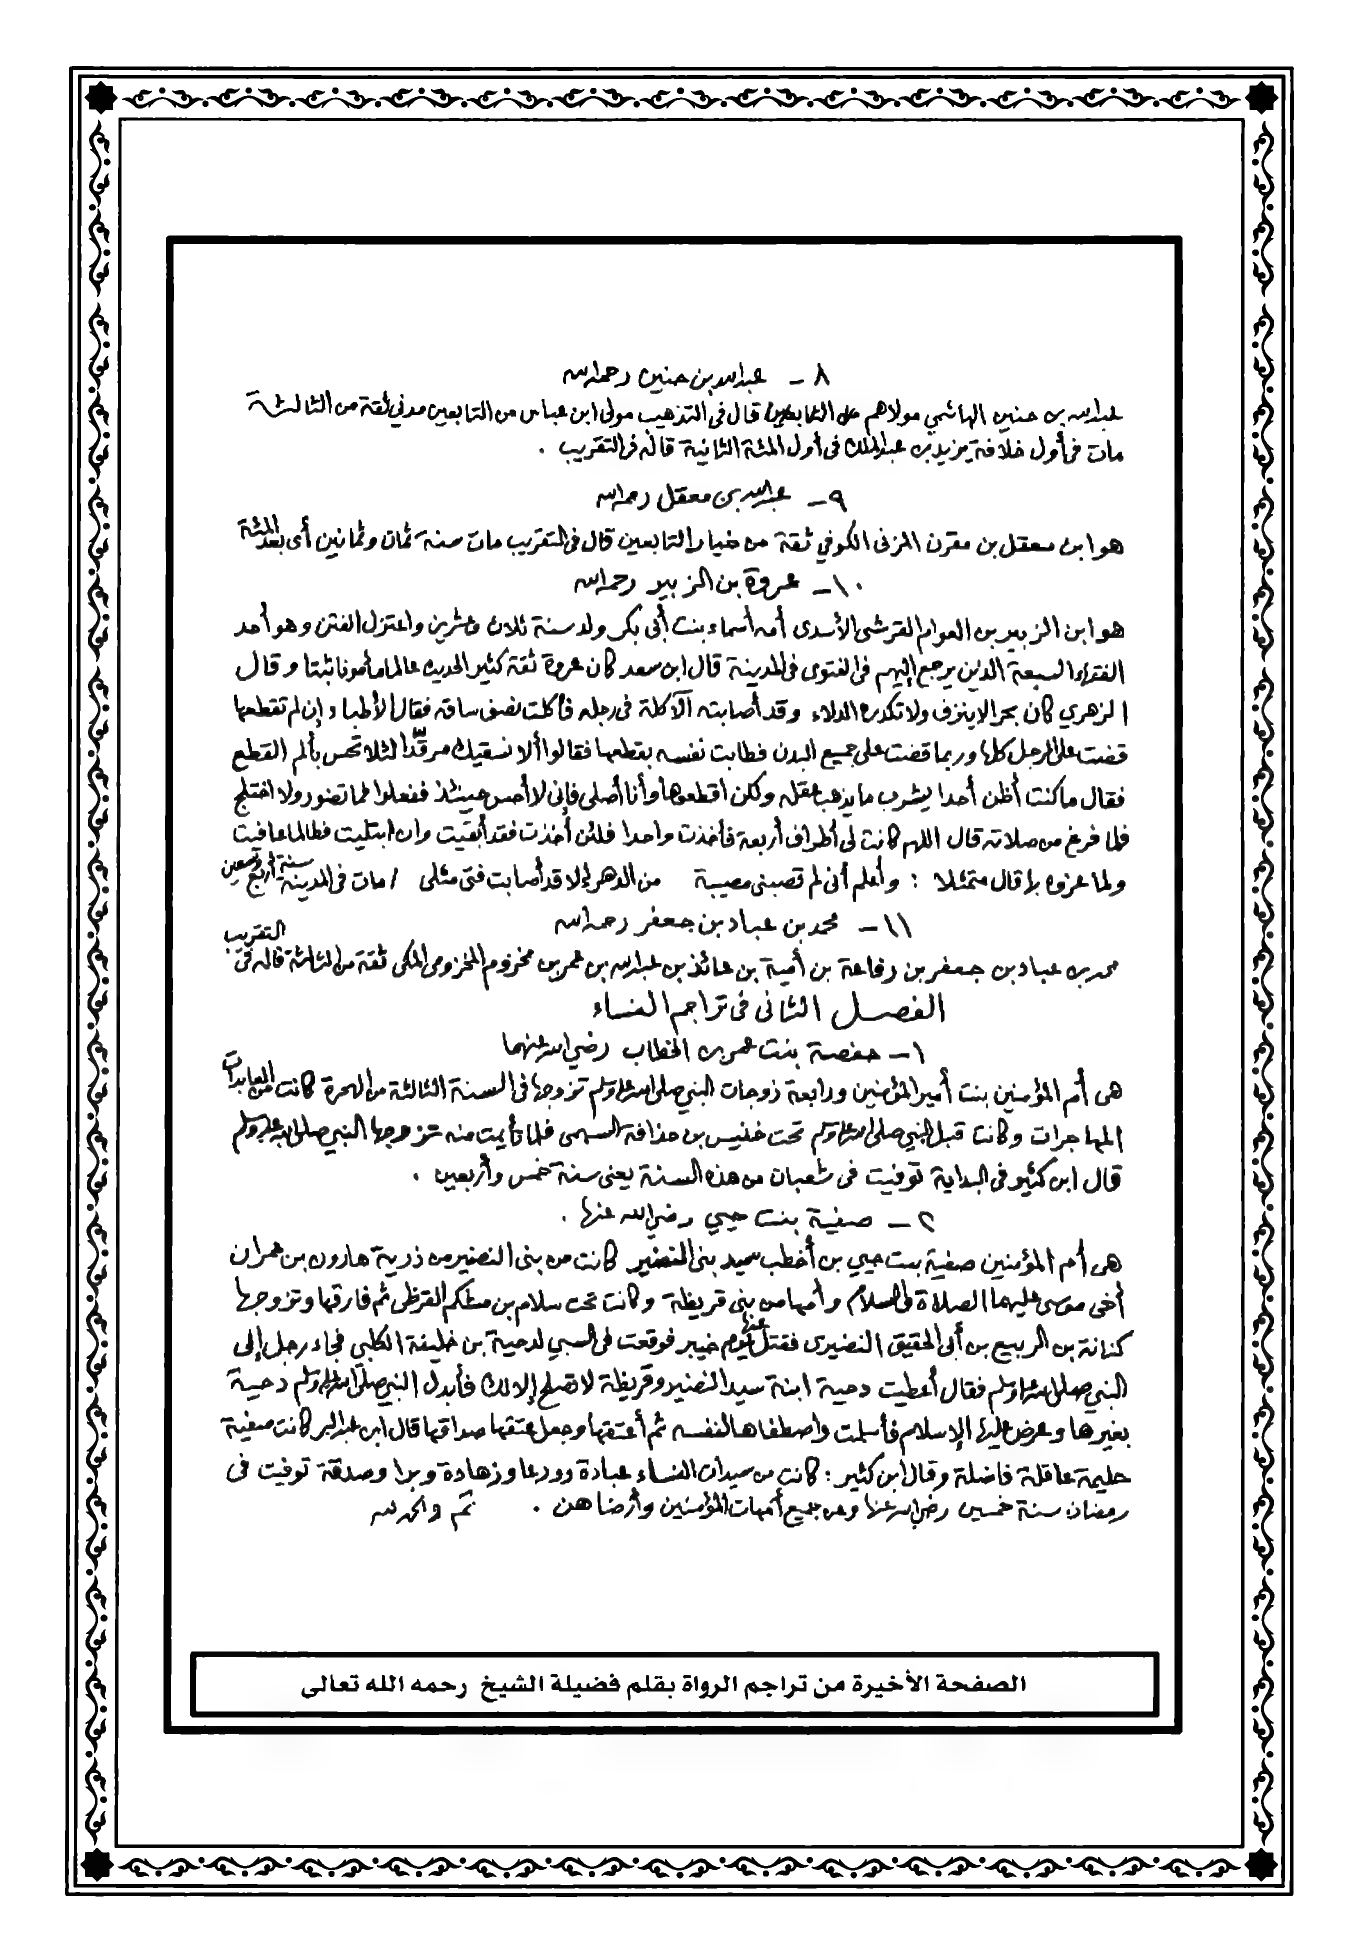 ٨ - عبدالله بن حنين رحمه الله
عبدالله بن حنين الهاشمي مولاهم من التابعين قال في التذهيب مولى ابن عباس من التابعين مدني ثقة من الثالثة
مات في أول خلافة يزيد بن عبدالملك في أول المئة الثانية قاله في التقريب .
٩ - عبدالله بن معقل رحمه الله
هو ابن معقل بن مقرن المزني الكوفي ثقة من خيار التابعين قال في التقريب مات سنة ثمان وثمانين أي بعد المئة
١٠ - عروة بن الزبير رحمه الله
هو ابن الزبير بن العوام القرشي الأسدي أمه أسماء بنت أبي بكر ولد سنة ثلاث وعشرين واعتزل الفتن وهو أحد
الفقهاء السبعة الذين يرجع إليهم في الفتوى في المدينة قال ابن سعد كان عروة ثقة كثير الحديث عالما مأمونا ثبتا وقال
الزهري كان بحرا لا ينزف ولا تكدره الدلاء وقد أصابته الآكلة في رجله فأكلت نصف ساقه فقال الأطباء إن لم تقطعها
قضت على الرجل كلها وربما قضت على جميع البدن فطابت نفسه بقطعها فقالوا ألا نسقيك مرقّدا لئلا تحس بألم القطع
فقال ما كنت أظن أحدا يشرب ما يذهب عقله ولكن اقطعوها وأنا أصلي فإني لا أحس حينئذ ففعلوا فما تضور ولا اختلج
فلما فرغ من صلاته قال اللهم كانت لي أطراف أربعة فأخذت واحدا فلئن أخذت فقد أبقيت وإن ابتليت فطالما عافيت
ولما عزوه بها قال متمثلا : وأعلم أني لم تصبني مصيبة من الدهر إلا قد أصابت فتى مثلي / مات في المدينة سنة أربع وتسعين
١١ - محمد بن عباد بن جعفر رحمه الله
محمد بن عباد بن جعفر بن رفاعة بن أمية بن عائذ بن عبدالله بن عمر بن مخزوم المخزومي المكي ثقة من الثالثة قاله في التقريب
الفصل الثاني في تراجم النساء
١ - حفصة بنت عمر بن الخطاب رضي الله عنهما
هي أم المؤمنين بنت أمير المؤمنين ورابعة زوجات النبي صلى الله عليه وسلم تزوجها في السنة الثالثة من الهجرة كانت من العابدات
المهاجرات وكانت قبل النبي صلى الله عليه وسلم تحت خنيس بن حذافة السهمي فلما تأيمت منه تزوجها النبي صلى الله عليه وسلم
قال ابن كثير في البداية توفيت في شعبان من هذه السنة يعني سنة خمس وأربعين .
٢ - صفية بنت حيي رضي الله عنها .
هي أم المؤمنين صفية بنت حيي بن أخطب سيد بني النضير كانت من بني النضير من ذرية هارون بن عمران
أخي موسى عليهما الصلاة والسلام وأمها من بني قريظة وكانت تحت سلام بن مشكم القرظي ثم فارقها وتزوجها
كنانة بن الربيع بن أبي الحقيق النضيري فقتل عنها يوم خيبر فوقعت في السبي لدحية بن خليفة الكلبي فجاء رجل إلى
النبي صلى الله عليه وسلم فقال أعطيت دحية ابنة سيد النضير وقريظة لا تصلح إلا لك فأبدل النبي صلى الله عليه وسلم دحية
بغيرها وعرض عليها الإسلام فأسلمت واصطفاها لنفسه ثم أعتقها وجعل عتقها صداقها قال ابن عبدالبر كانت صفية
حليمة عاقلة فاضلة وقال ابن كثير : كانت من سيدات النساء عبادة وورعا وزهادة وبرا وصدقة توفيت في
رمضان سنة خمسين رضي الله عنها وعن جميع أمهات المؤمنين وأرضاهن . تم والحمد لله
الصفحة الأخيرة من تراجم الرواة بقلم فضيلة الشيخ رحمه الله تعالى